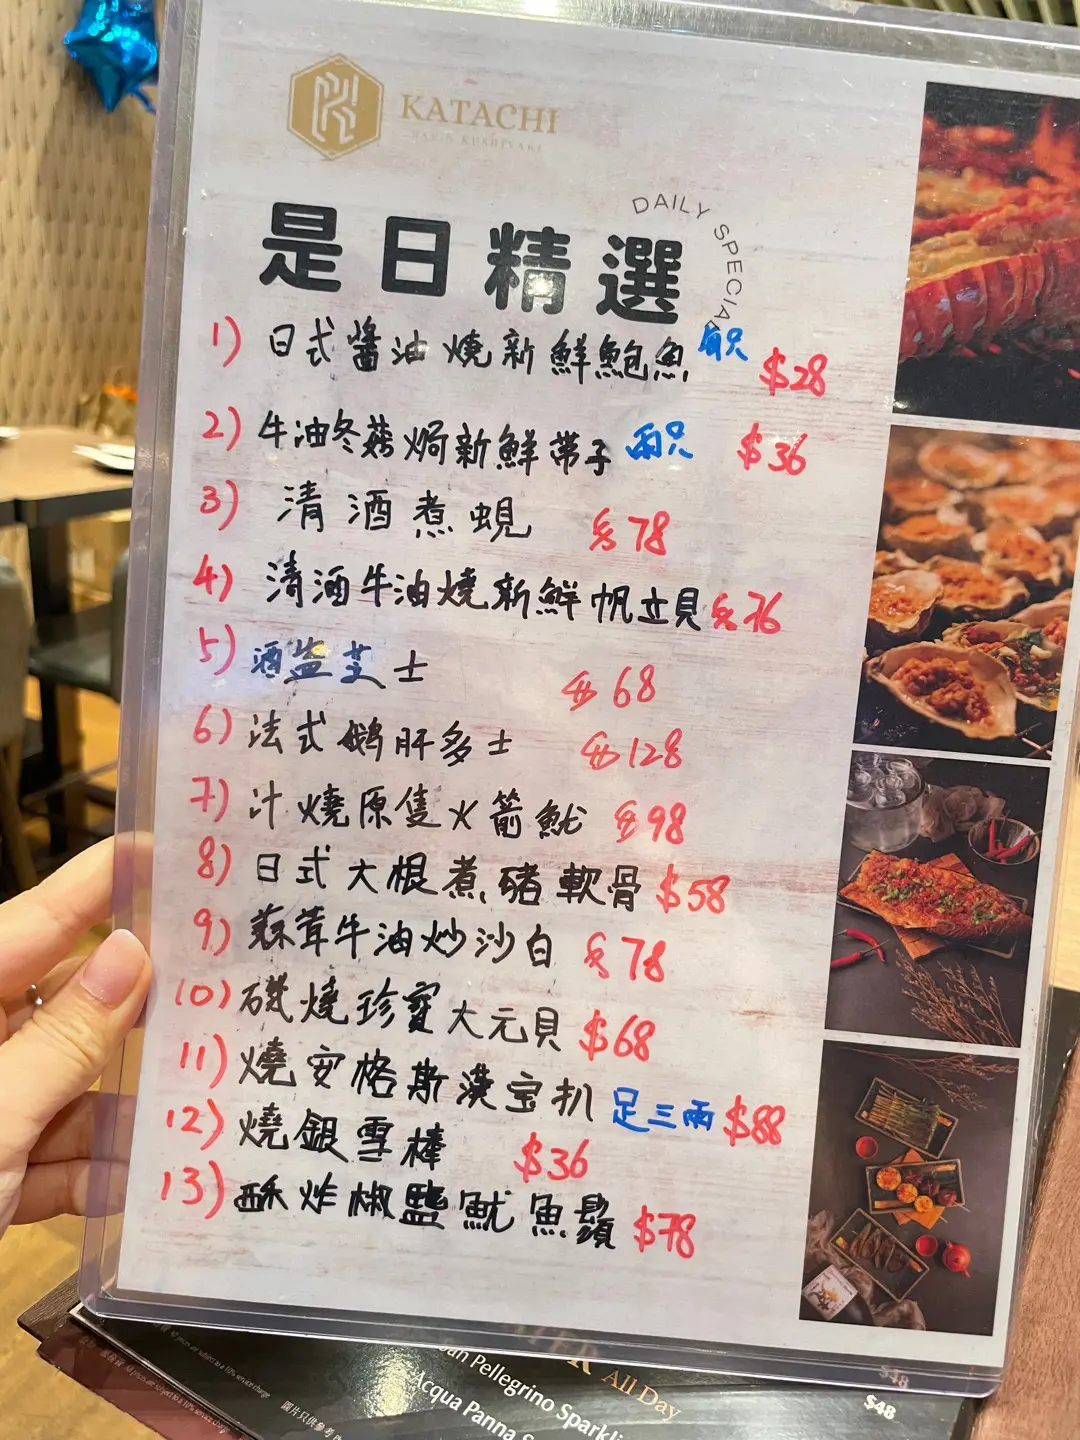 KATACHI
BAR & KUSHIYAKI
是日精選
DAILY SPECIAL
1) 日式醬油燒新鮮鮑魚 每只 $28
2) 牛油冬菇焗新鮮帶子 兩只 $36
3) 清酒煮蜆 $78
4) 清酒牛油燒新鮮帆立貝 $76
5) 酒盜芝士 $68
6) 法式鵝肝多士 $128
7) 汁燒原隻火箭魷 $98
8) 日式大根煮豬軟骨 $58
9) 蒜茸牛油炒沙白 $78
10) 磯燒珍寶大元貝 $68
11) 燒安格斯漢宝扒 足三兩 $88
12) 燒銀雪棒 $36
13) 酥炸椒鹽魷魚鬚 $78
All Day
San Pellegrino Sparkli
$48
Acqua Panna
$48
圖片只供參考